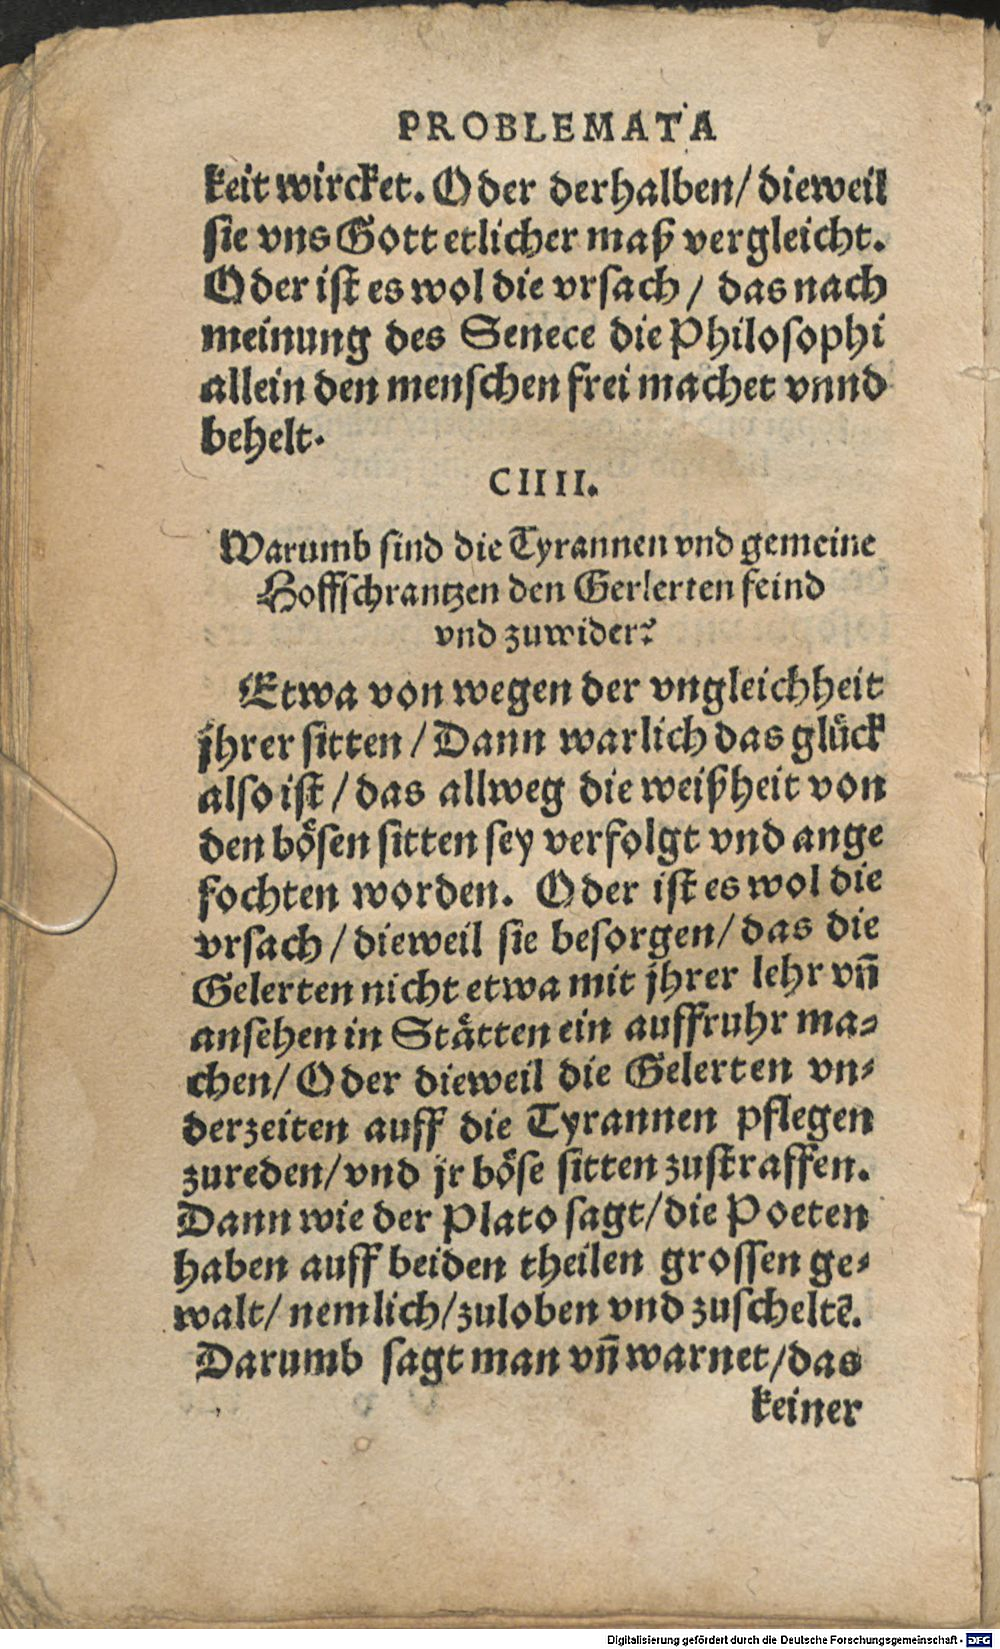 PROBLEMATA
keit wircket. Oder derhalben/ dieweil
sie vns Gott etlicher maß vergleicht.
Oder ist es wol die vrsach / das nach
meinung des Senece die Philosophi
allein den menschen frei machet vnnd
behelt.
CIIII.
Warumb sind die Tyrannen vnd gemeine
Hoffschrantzen den Gerlerten feind
vnd zuwider?
Etwa von wegen der vngleichheit
jhrer sitten / Dann warlich das glück
also ist / das allweg die weißheit von
den bösen sitten sey verfolgt vnd ange
fochten worden. Oder ist es wol die
vrsach / dieweil sie besorgen/ das die
Gelerten nicht etwa mit jhrer lehr vñ
ansehen in Stätten ein auffruhr ma-
chen/ Oder dieweil die Gelerten vn-
derzeiten auff die Tyrannen pflegen
zureden/ vnd jr böse sitten zustraffen.
Dann wie der Plato sagt/ die Poeten
haben auff beiden theilen grossen ge-
walt/ nemlich/ zuloben vnd zuscheltẽ.
Darumb sagt man vñ warnet/ das
keiner
Digitalisierung gefördert durch die Deutsche Forschungsgemeinschaft - DFG